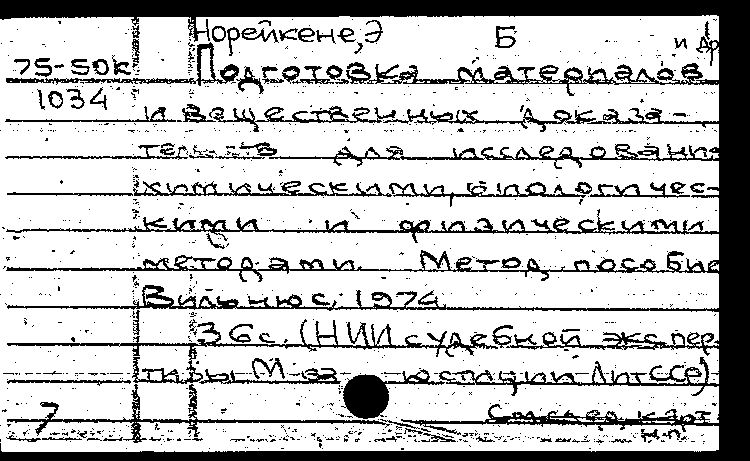 Норейкене, Э Б и др
75-50к Подготовка материалов
1034
и вещественных доказа-
тельств для исследования
химическими, биологичес-
кими и физическими
методами. Метод, пособие
Вильнюс, 1974
36с. (НИИ судебной экспер-
тизы М-ва юстиции ЛитССР)
7
н.п.